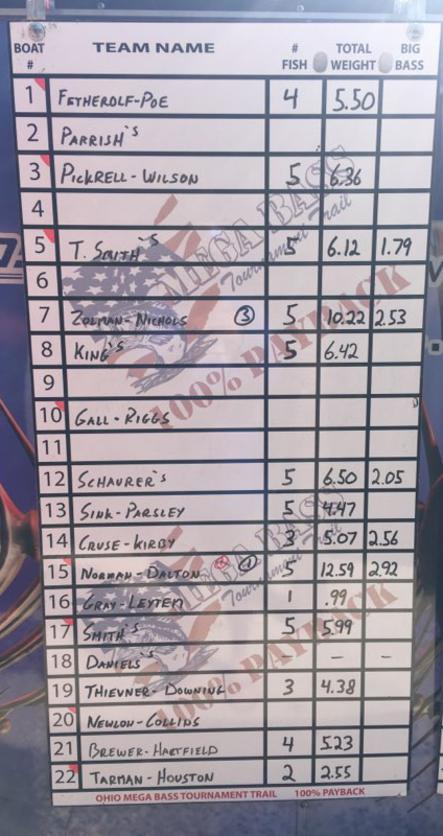 BOAT # TEAM NAME # FISH TOTAL WEIGHT BIG BASS
1 FETHEROLF-POE 4 5.50
2 PARRISH'S
3 PICKRELL-WILSON 5 6.36
4
5 T. SMITH'S 5 6.12 1.79
6
7 ZOLMAN-NICHOLS ③ 5 10.22 2.53
8 KING'S 5 6.42
9
10 GALL-RIGGS
11
12 SCHAURER'S 5 6.50 2.05
13 SINK-PARSLEY 5 4.47
14 CRUSE-KIRBY 3 5.07 2.56
15 NORMAN-DALTON ① 5 12.59 2.92
16 GRAY-LEYTEM 1 .99
17 SMITH'S 5 5.99
18 DANIELS'S - - -
19 THIEVNER-DOWNING 3 4.38
20 NEWLON-COLLINS
21 BREWER-HARTFIELD 4 5.23
22 TARMAN-HOUSTON 2 2.55
MEGA BASS
Tournament Trail
100% PAYBACK
MEGA BASS
Tournament Trail
100% PAYBACK
OHIO MEGA BASS TOURNAMENT TRAIL 100% PAYBACK